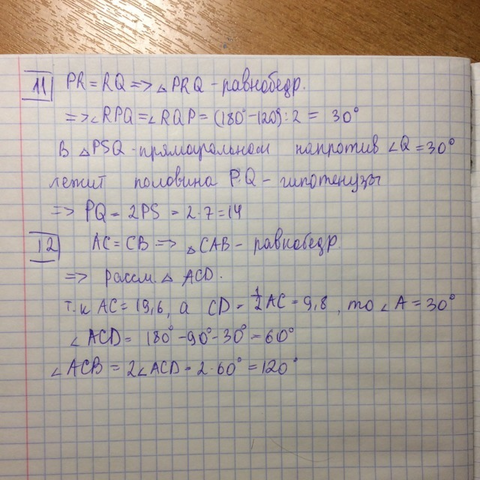 11 PR = RQ => △PRQ - равнобедр.
=> ∠RPQ = ∠RQP = (180° - 120°) : 2 = 30°
В △PSQ - прямоугольном напротив ∠Q = 30°
лежит половина PQ - гипотенузы
=> PQ = 2PS = 2 · 7 = 14
12 AC = CB => △CAB - равнобедр
=> рассм. △ ACD.
т.к AC = 19,6, а CD = 1/2 AC = 9,8, то ∠A = 30°
∠ACD = 180° - 90° - 30° = 60°
∠ACB = 2∠ACD = 2 · 60° = 120°